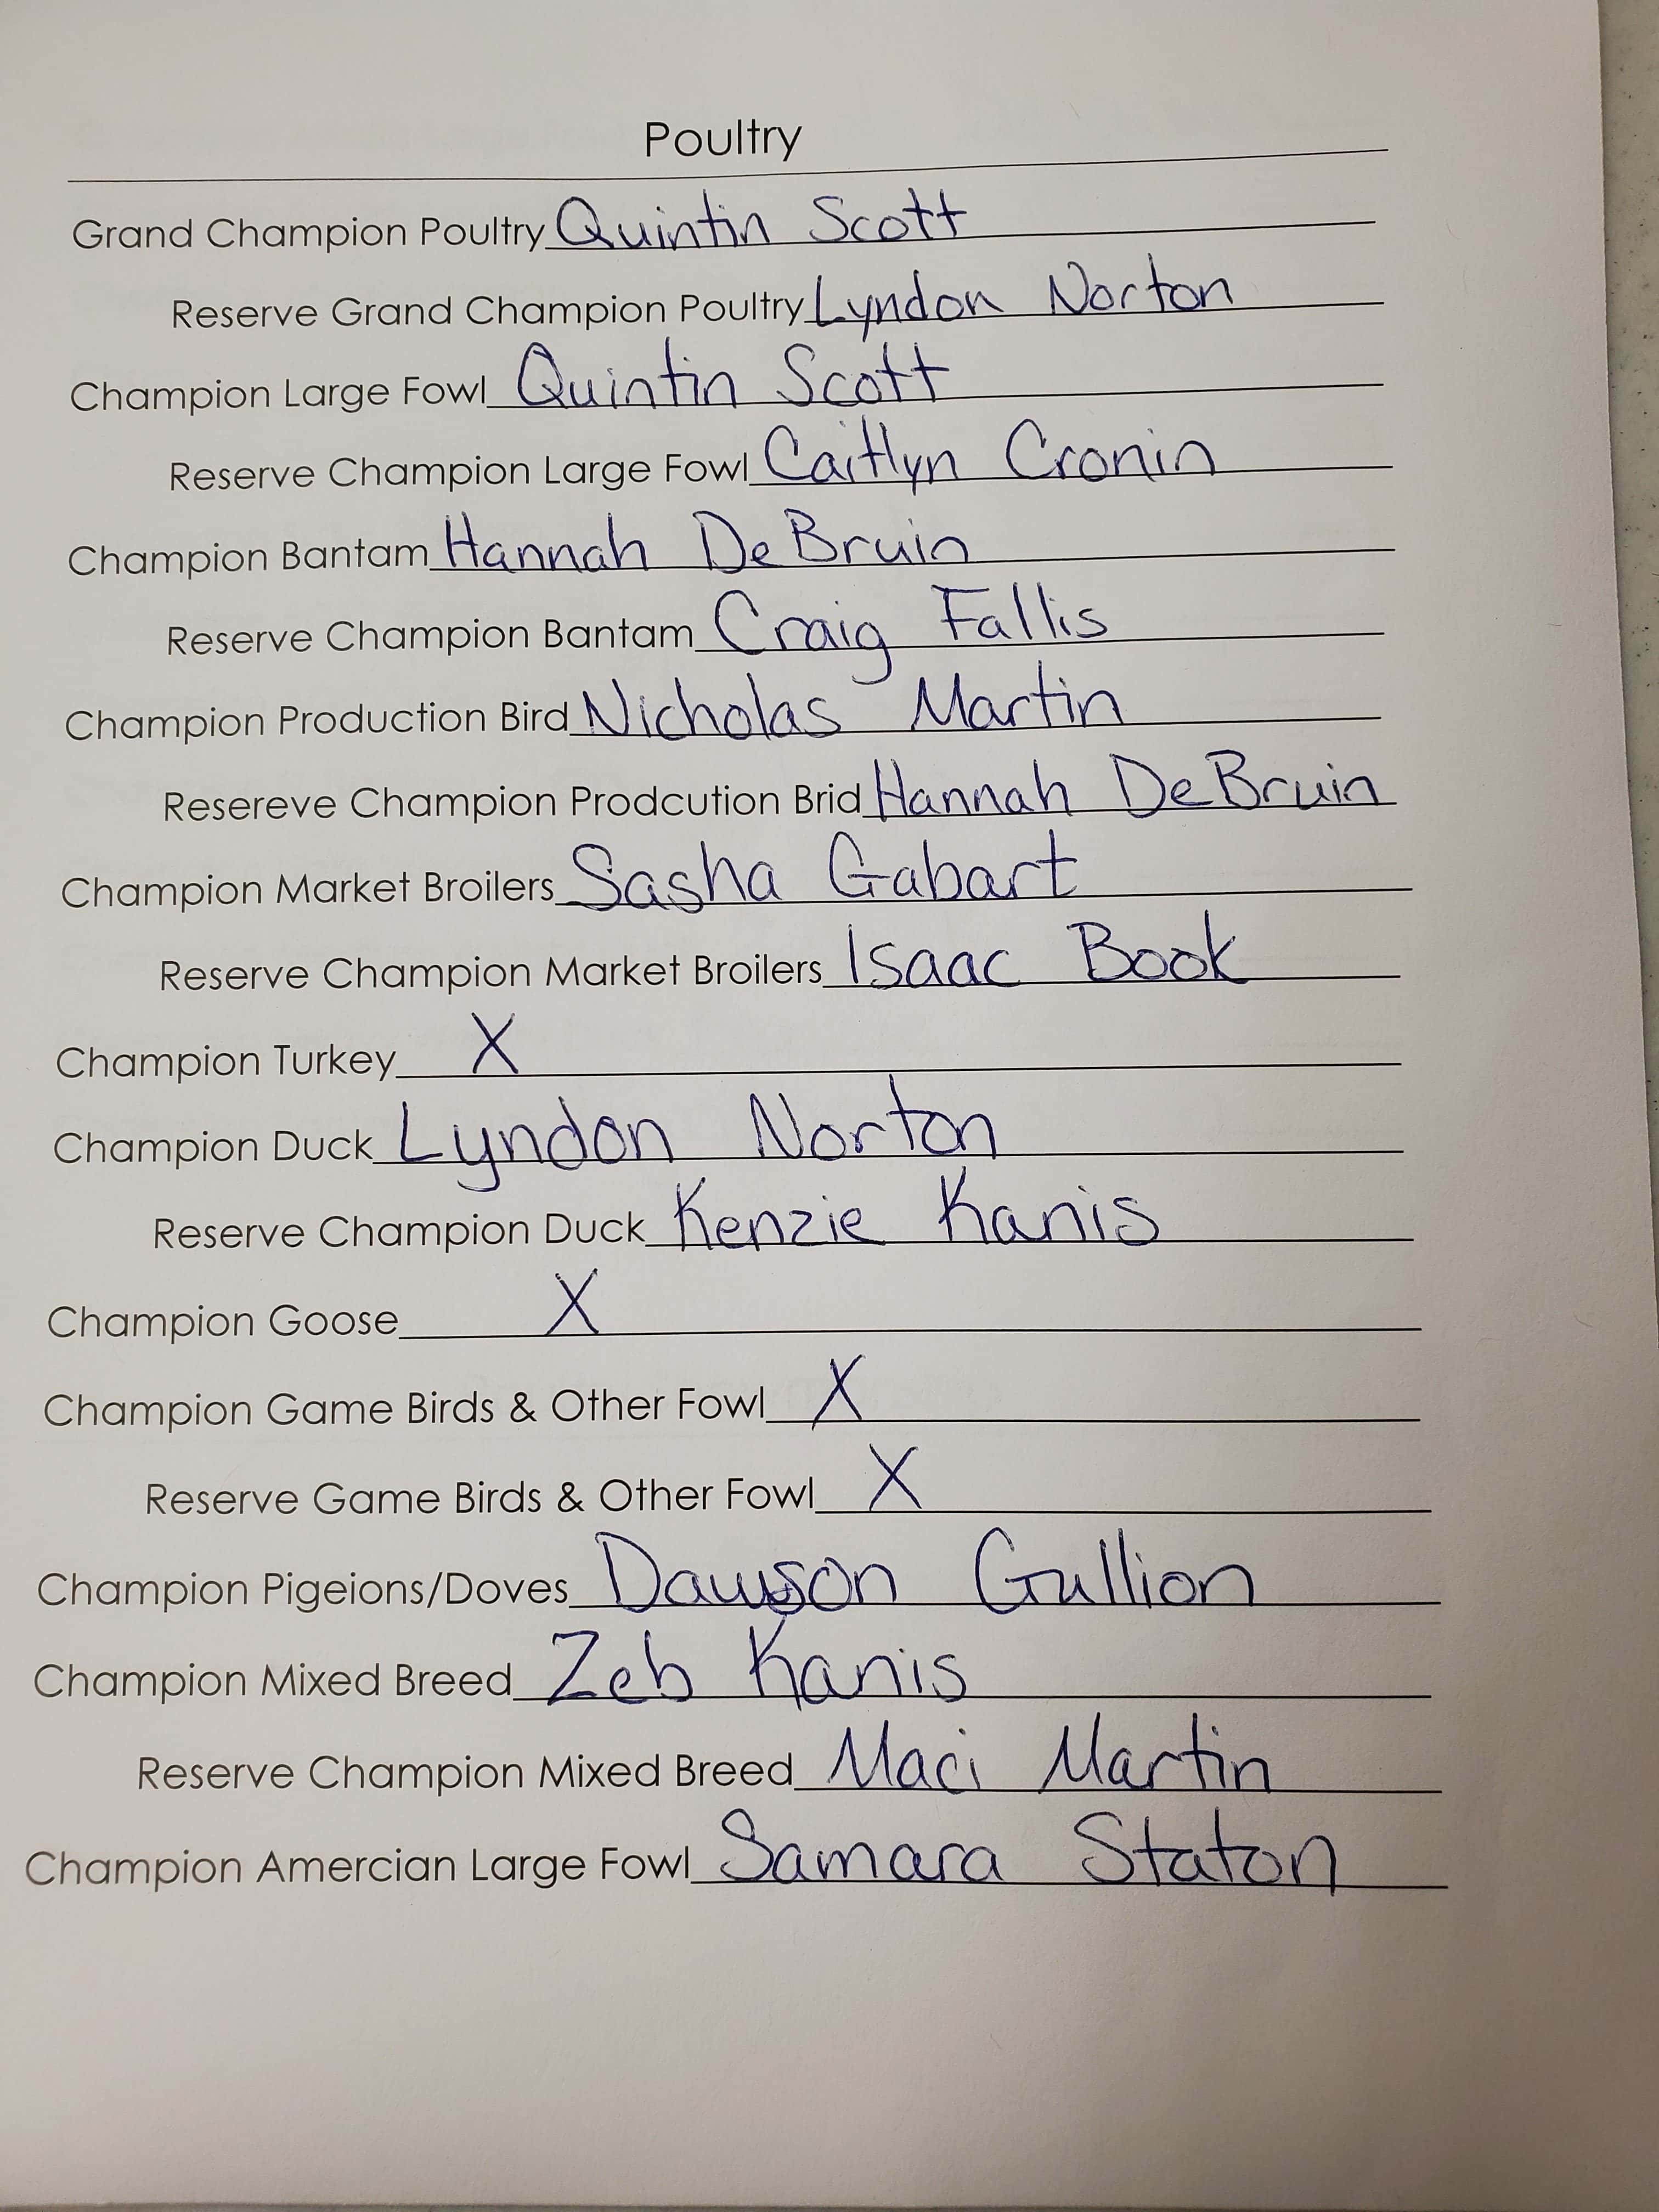 Poultry
Grand Champion Poultry Quintin Scott
Reserve Grand Champion Poultry Lyndon Norton
Champion Large Fowl Quintin Scott
Reserve Champion Large Fowl Caitlyn Cronin
Champion Bantam Hannah DeBruin
Reserve Champion Bantam Craig Fallis
Champion Production Bird Nicholas Martin
Resereve Champion Prodcution Brid Hannah DeBruin
Champion Market Broilers Sasha Gabart
Reserve Champion Market Broilers Isaac Book
Champion Turkey X
Champion Duck Lyndon Norton
Reserve Champion Duck Kenzie Kanis
Champion Goose X
Champion Game Birds & Other Fowl X
Reserve Game Birds & Other Fowl X
Champion Pigeions/Doves Dawson Gullion
Champion Mixed Breed Zeb Kanis
Reserve Champion Mixed Breed Maci Martin
Champion Amercian Large Fowl Samara Staton